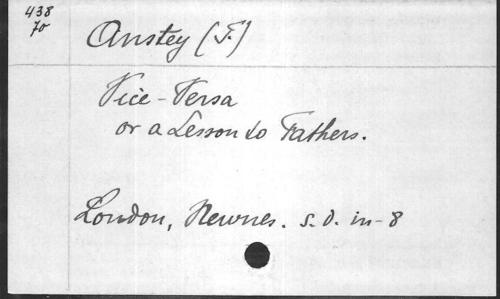 438
70
Anstey (F.)
Vice-Versa
or a Lesson to Fathers.
London, Newnes. s. d. in-8